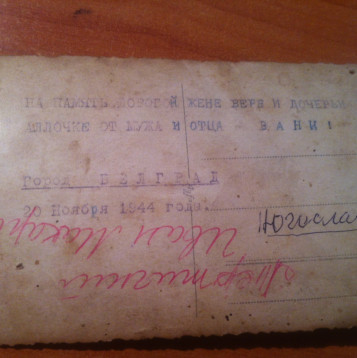 НА ПАМЯТЬ ДОРОГОЙ ЖЕНЕ ВЕРЕ И ДОЧЕРЬЕ
МИЛОЧКЕ ОТ МУЖА И ОТЦА - ВАНИ!
Город БЕЛГРАД
Ноября 1944 года.
Югослав
Иван Макар